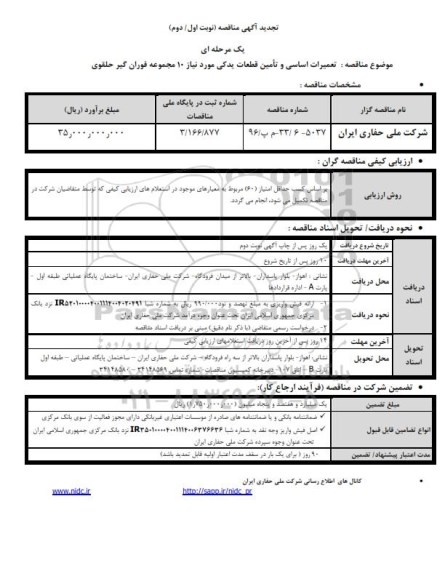 تجدید آگهی مناقصه (نوبت اول/ دوم)
یک مرحله ای
موضوع مناقصه : تعمیرات اساسی و تأمین قطعات یدکی مورد نیاز ۱۰ مجموعه فوران گیر حلقوی
مشخصات مناقصه :
نام مناقصه گزار شماره مناقصه شماره ثبت در پایگاه ملی مناقصات مبلغ برآورد (ریال)
شرکت ملی حفاری ایران ۵۰۳۷- ۶ /۳۳-م پ/۹۶ ۳/۱۶۶/۸۷۷ ۳۵٫۰۰۰٫۰۰۰٫۰۰۰
ارزیابی کیفی مناقصه گران :
روش ارزیابی
بر اساس کسب حداقل امتیاز (۶۰) مربوط به معیارهای موجود در استعلام های ارزیابی کیفی که توسط متقاضیان شرکت در
مناقصه تکمیل می شود، انجام می گردد.
نحوه دریافت/ تحویل اسناد مناقصه :
دریافت اسناد
تاریخ شروع دریافت یک روز پس از چاپ آگهی نوبت دوم
آخرین مهلت دریافت ۱۰ روز پس از تاریخ شروع
محل دریافت نشانی : اهواز- بلوار پاسداران- بالاتر از میدان فرودگاه- شرکت ملی حفاری ایران- ساختمان پایگاه عملیاتی طبقه اول -
پارت A – اداره قراردادها
نحوه دریافت ۱- ارائه فیش واریزی به مبلغ نهصد و نود۹۹۰/۰۰۰ ریال به شماره شبا نزد بانک
مرکزی جمهوری اسلامی ایران تحت عنوان وجوه درآمد شرکت ملی حفاری ایران
۲- درخواست رسمی متقاضی (با ذکر نام دقیق) مبنی بر دریافت اسناد مناقصه
تحویل اسناد
آخرین مهلت ۱۴ روز پس از آخرین روز دریافت استعلامهای ارزیابی کیفی
محل تحویل نشانی: اهواز- بلوار پاسداران بالاتر از سه راه فرودگاه– شرکت ملی حفاری ایران – ساختمان پایگاه عملیاتی – طبقه اول
پارت B - اتاق ۱۰۷- دبیرخانه کمیسیون مناقصات -شماره تماس ۳۴۱۴۸۵۶۹ - ۳۴۱۴۸۵۸۰
تضمین شرکت در مناقصه (فرآیند ارجاع کار):
مبلغ تضمین یک میلیارد و هفتصد و پنجاه میلیون (۱/۷۵۰/۰۰۰/۰۰۰) ریال
انواع تضامین قابل قبول
✓ ضمانتنامه بانکی و یا ضمانتنامه های صادره از موسسات اعتباری غیربانکی دارای مجوز فعالیت از سوی بانک مرکزی
✓ اصل فیش واریز وجه نقد به شماره شبا نزد بانک مرکزی جمهوری اسلامی ایران
تحت عنوان وجوه سپرده شرکت ملی حفاری ایران
مدت اعتبار پیشنهاد/ تضمین ۹۰ روز ( برای یک بار در سقف مدت اعتبار اولیه قابل تمدید باشد)
کانال های اطلاع رسانی شرکت ملی حفاری ایران
http://sapp.ir/nidc_pr www.nidc.ir